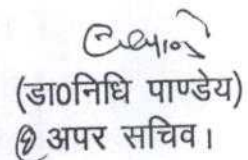 (डा0निधि पाण्डेय)
अपर सचिव।